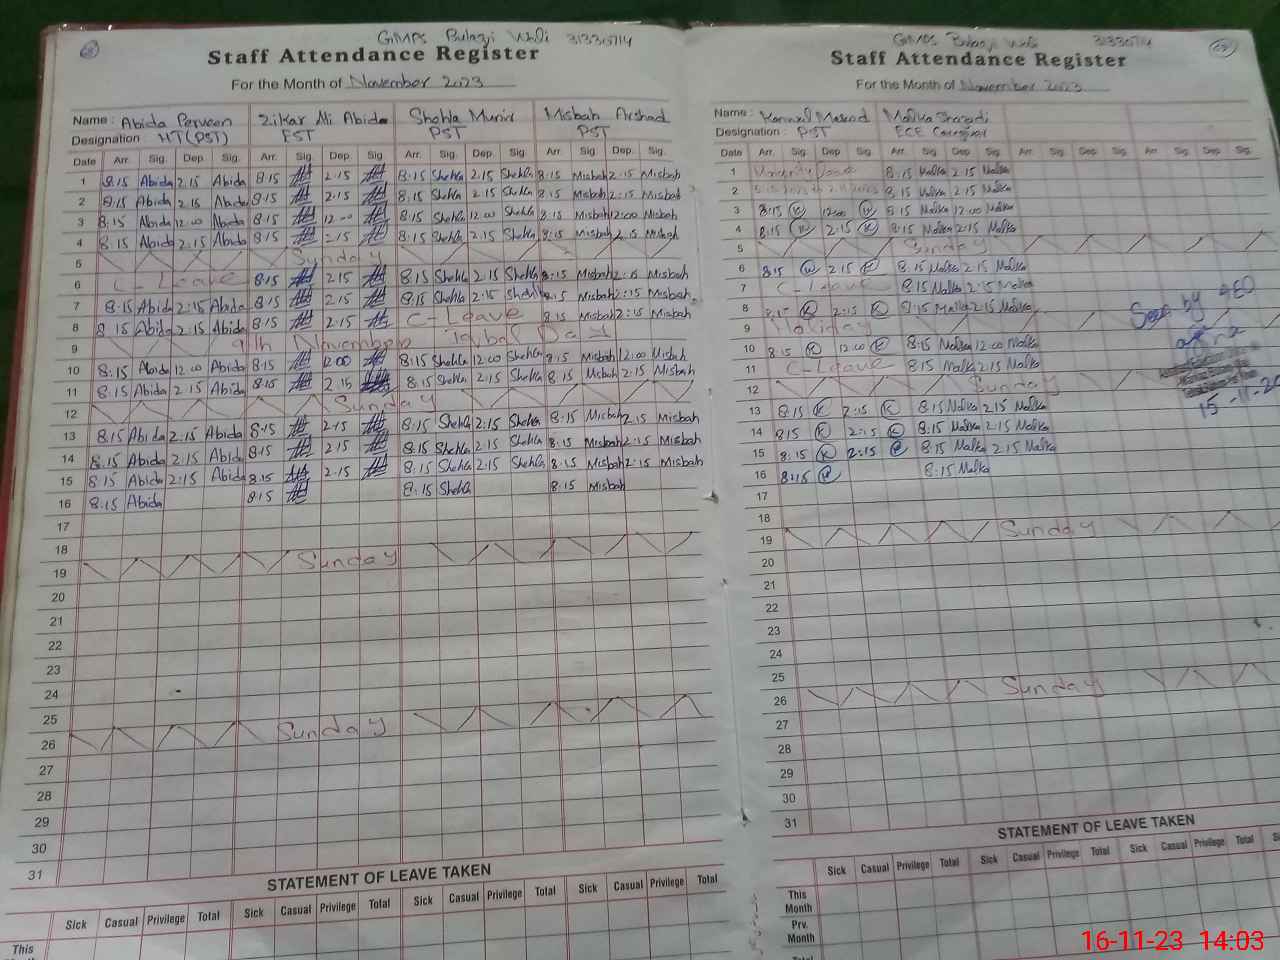 GMPS Bulagi Wali 31330714
Staff Attendance Register
For the Month of November 2023
Name: Abida Perveen Zikar Mi Abida Shehla Munir Misbah Arshad
Designation HT(PST) EST PST PST
Date Arr. Sig. Dep. Sig. Arr. Sig. Dep. Sig. Arr. Sig. Dep. Sig. Arr. Sig. Dep. Sig.
1 8:15 Abida 2:15 Abida 8:15 2:15 8:15 Shehla 2:15 Shehla 8:15 Misbah 2:15 Misbah
2 8:15 Abida 2:15 Abida 8:15 2:15 8:15 Shehla 2:15 Shehla 8:15 Misbah 2:15 Misbah
3 8:15 Abida 12:00 Abida 8:15 12:00 8:15 Shehla 12:00 Shehla 8:15 Misbah 12:00 Misbah
4 8:15 Abida 2:15 Abida 8:15 2:15 8:15 Shehla 2:15 Shehla 8:15 Misbah 2:15 Misbah
5 Sunday
6 C-Leave 8:15 2:15 8:15 Shehla 2:15 Shehla 8:15 Misbah 2:15 Misbah
7 8:15 Abida 2:15 Abida 8:15 2:15 8:15 Shehla 2:15 Shehla 8:15 Misbah 2:15 Misbah
8 8:15 Abida 2:15 Abida 8:15 2:15 C-Leave 8:15 Misbah 2:15 Misbah
9 9th November Iqbal Day
10 8:15 Abida 12:00 Abida 8:15 12:00 8:15 Shehla 12:00 Shehla 8:15 Misbah 12:00 Misbah
11 8:15 Abida 2:15 Abida 8:15 2:15 8:15 Shehla 2:15 Shehla 8:15 Misbah 2:15 Misbah
12 Sunday
13 8:15 Abida 2:15 Abida 8:15 2:15 8:15 Shehla 2:15 Shehla 8:15 Misbah 2:15 Misbah
14 8:15 Abida 2:15 Abida 8:15 2:15 8:15 Shehla 2:15 Shehla 8:15 Misbah 2:15 Misbah
15 8:15 Abida 2:15 Abida 8:15 2:15 8:15 Shehla 2:15 Shehla 8:15 Misbah 2:15 Misbah
16 8:15 Abida 8:15 8:15 Shehla 8:15 Misbah
17
18
19 Sunday
20
21
22
23
24
25
26 Sunday
27
28
29
30
31
STATEMENT OF LEAVE TAKEN
Sick Casual Privilege Total Sick Casual Privilege Total Sick Casual Privilege Total Sick Casual Privilege Total
This
GMPS Bulagi Wali 31330714
Staff Attendance Register
For the Month of November 2023
Name: Kanwal Malka
Designation: PST ECE Caregiver
Date Arr. Sig. Dep. Sig. Arr. Sig. Dep. Sig. Arr. Sig. Dep. Sig. Arr. Sig. Dep. Sig.
1 8:15 Malka 2:15 Malka
2 8:15 Malka 2:15 Malka
3 8:15 K 12:00 K 8:15 Malka 12:00 Malka
4 8:15 K 2:15 K 8:15 Malka 2:15 Malka
5 Sunday
6 8:15 K 2:15 K 8:15 Malka 2:15 Malka
7 C-Leave 8:15 Malka 2:15 Malka
8 8:15 K 2:15 K 8:15 Malka 2:15 Malka
9 Holiday
10 8:15 K 12:00 K 8:15 Malka 12:00 Malka
11 C-Leave 8:15 Malka 2:15 Malka
12 Sunday
13 8:15 K 2:15 K 8:15 Malka 2:15 Malka
14 8:15 K 2:15 K 8:15 Malka 2:15 Malka
15 8:15 K 2:15 K 8:15 Malka 2:15 Malka
16 8:15 K 8:15 Malka
17
18
19 Sunday
20
21
22
23
24
25
26 Sunday
27
28
29
30
31
Seen by AEO
15-11-20
STATEMENT OF LEAVE TAKEN
Sick Casual Privilege Total Sick Casual Privilege Total Sick Casual Privilege Total
This Month
Prv. Month
16-11-23 14:03